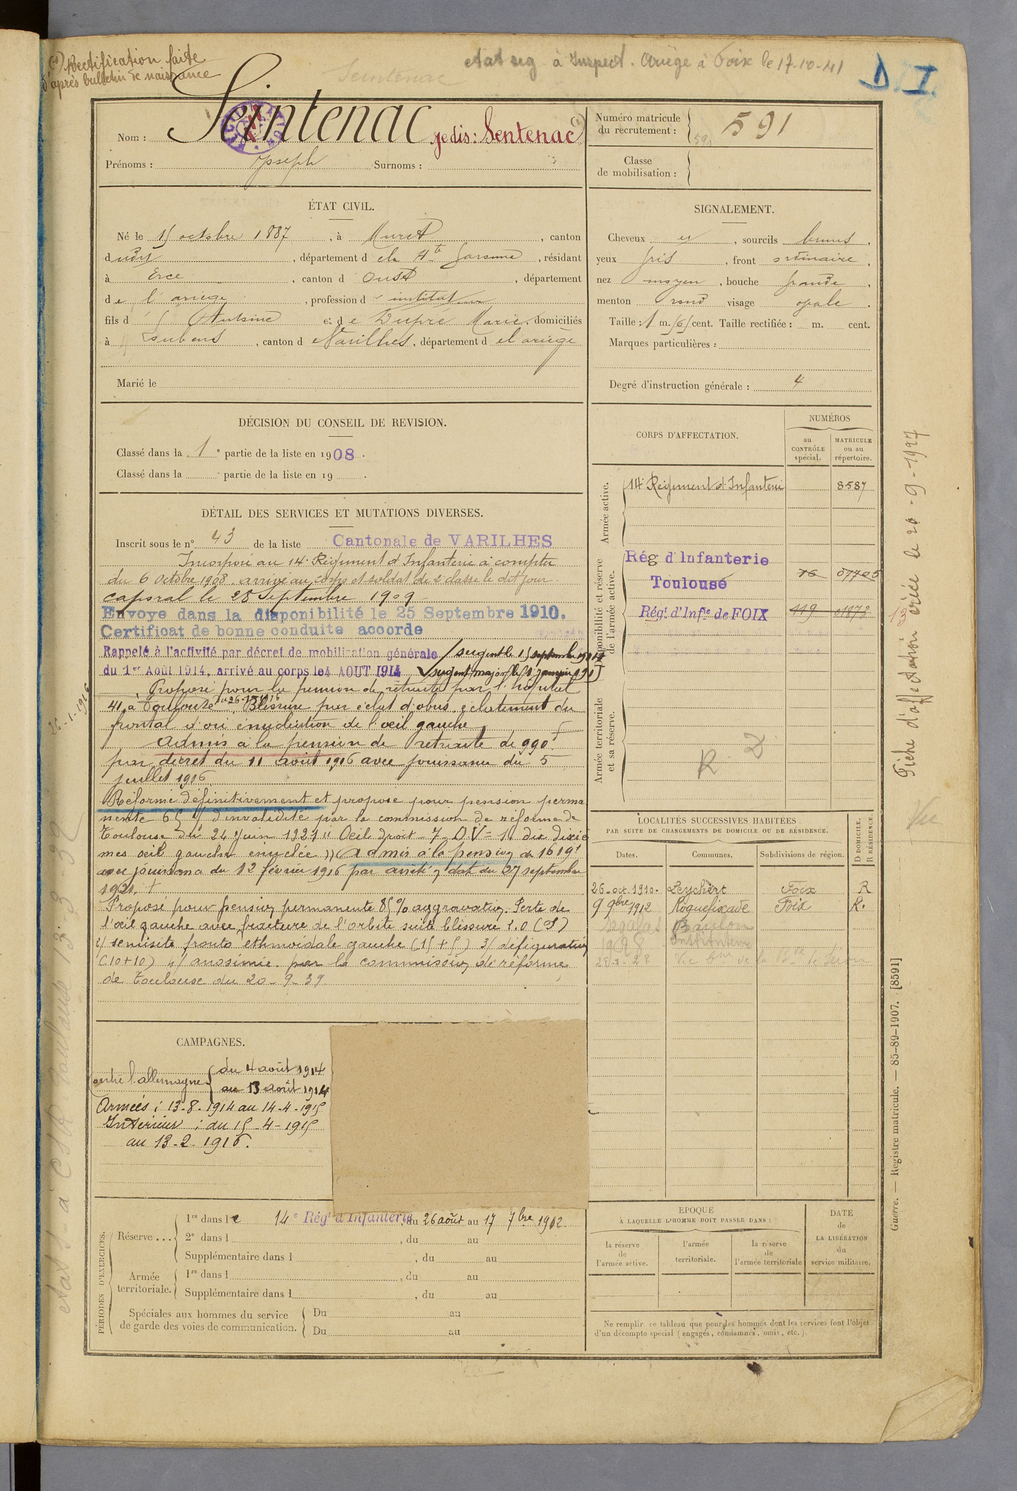 (*) Rectification faite
d'après bulletin de naissance
Seintenac
etat sig. à Inspect. Ariège à Foix le 17-10-41
D. I.
Nom : Seintenac je dis : Sentenac
Prénoms : Joseph Surnoms :
Numéro matricule du recrutement : 591
Classe de mobilisation :
ÉTAT CIVIL.
Né le 15 octobre 1887, à Muret, canton
dudit, département de la Hte Garonne, résidant
à Ercé, canton d'Oust, département
de l'ariège, profession d'instituteur
fils d' Antoine et de Dupré Marie, domiciliés
à Loubens, canton de Varilhes, département de l'ariège
Marié le
SIGNALEMENT.
Cheveux et, sourcils bruns,
yeux gris, front ordinaire,
nez moyen, bouche grande,
menton rond visage ovale.
Taille : 1 m. 61 cent. Taille rectifiée : m. cent.
Marques particulières :
Degré d'instruction générale : 4
DÉCISION DU CONSEIL DE REVISION.
Classé dans la 1e partie de la liste en 1908.
Classé dans la partie de la liste en 19
DÉTAIL DES SERVICES ET MUTATIONS DIVERSES.
Inscrit sous le n° 43 de la liste Cantonale de VARILHES
Incorporé au 14e Régiment d'Infanterie à compter
du 6 octobre 1908. arrivé au corps et soldat de 2e classe le dit jour
caporal le 28 Septembre 1909
Envoyé dans la disponibilité le 25 Septembre 1910.
Certificat de bonne conduite accordé
Rappelé à l'activité par décret de mobilisation générale
du 1er Août 1914, arrivé au corps le 4 AOUT 1914
sergent le 15 septembre 1914
Proposé pour la pension de retraite par l'hôpital
41, à Toulouse. Blessure par éclat d'obus, éclatement du
frontal d'où énucléation de l'oeil gauche
Admis à la pension de retraite de 990f
par décret du 11 août 1916 avec jouissance du 5
juillet 1916
Réformé définitivement et proposé pour pension perma
nente 65 % d'invalidité par la commission de réforme de
Toulouse du 24 juin 1921 "Oeil droit 7 O.V = 1 dix dixiè
mes oeil gauche énuclée" Admis à la pension de 1619f
avec jouissance du 12 février 1916 par arrêté en date du 27 septembre
1921.
Proposé pour pension permanente 85% aggravation. Perte de
l'oeil gauche avec fracture de l'orbite suite blessure
2/ sinusite fronto ethmoïdale gauche (15+5) 3/ défiguration
(10+10) 4/ anosmie. par la commission de réforme
de Toulouse du 20-9-39
CORPS D'AFFECTATION.
NUMÉROS
au CONTRÔLE spécial.
MATRICULE ou au répertoire.
Armée active.
14e Régiment d'Infanterie 8587
Disponibilité et réserve de l'armée active.
Rég d'Infanterie
Toulouse
Régt d'Infie de FOIX
Armée territoriale et sa réserve.
R
LOCALITÉS SUCCESSIVES HABITÉES
PAR SUITE DE CHANGEMENTS DE DOMICILE OU DE RÉSIDENCE.
Dates. Communes. Subdivisions de région. D DOMICILE. R RÉSIDENCE.
25 oct. 1910. Leychert Foix R
9 9bre 1912 Roquefixade Foix R.
CAMPAGNES.
Contre l'allemagne du 4 août 1914
au 13 août 1914
Armées : 13-8-1914 au 14-4-1915
Intérieur : du 15-4-1915
au 13-2-1916.
PÉRIODES D'EXERCICES.
Réserve ... 1re dans le 14e Régt d'Infanterie du 26 août au 17 7bre 1912
2e dans l , du au
Supplémentaire dans l , du au
Armée territoriale. 1re dans l , du au
Supplémentaire dans l , du au
Spéciales aux hommes du service de garde des voies de communication. Du au
Du au
EPOQUE
À LAQUELLE L'HOMME DOIT PASSER DANS :
la réserve de l'armée active.
l'armée territoriale.
la réserve de l'armée territoriale
DATE de LA LIBÉRATION du service militaire.
Ne remplir ce tableau que pour les hommes dont les services font l'objet
d'un décompte spécial (engagés, condamnés, omis, etc.).
Fiche d'affectation créée le 20-9-1927
Guerre. — Registre matricule. — 85-89-1907. [8591]